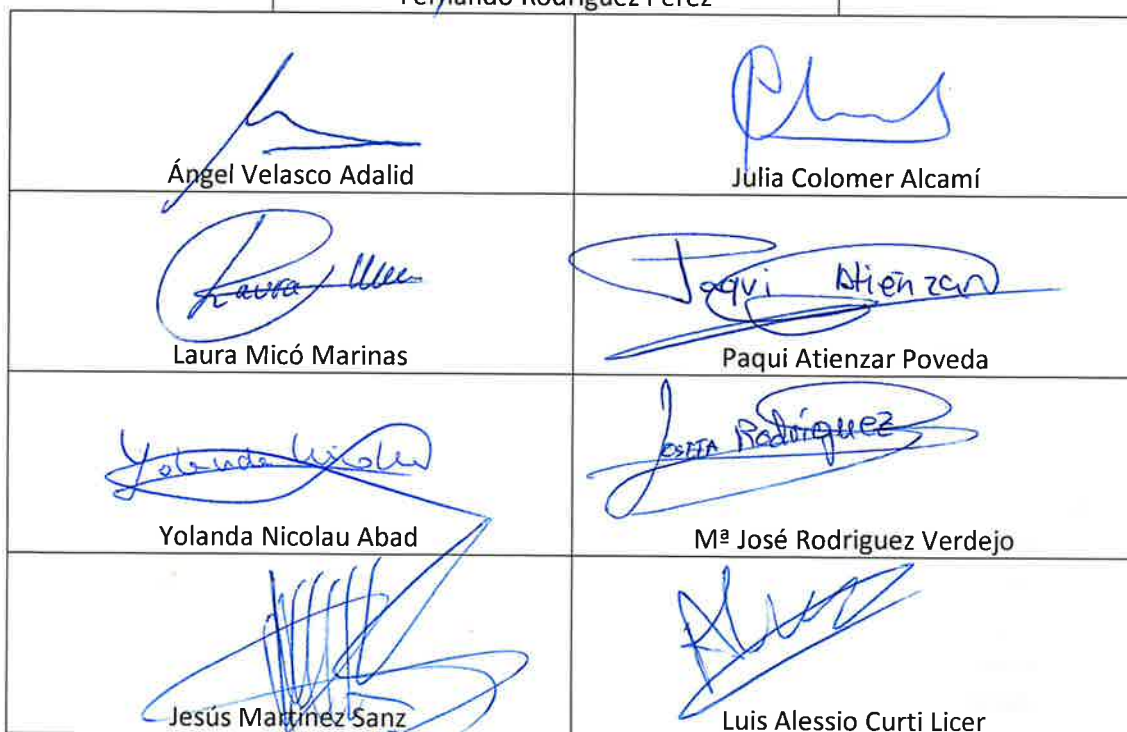 Fernando Rodríguez Pérez
Ángel Velasco Adalid
Julia Colomer Alcamí
Laura
Laura Micó Marinas
Paqui Atienzar
Paqui Atienzar Poveda
Yolanda Nicolau
Yolanda Nicolau Abad
Josefa Rodríguez
Mª José Rodriguez Verdejo
Jesús Martínez Sanz
Luis Alessio Curti Licer